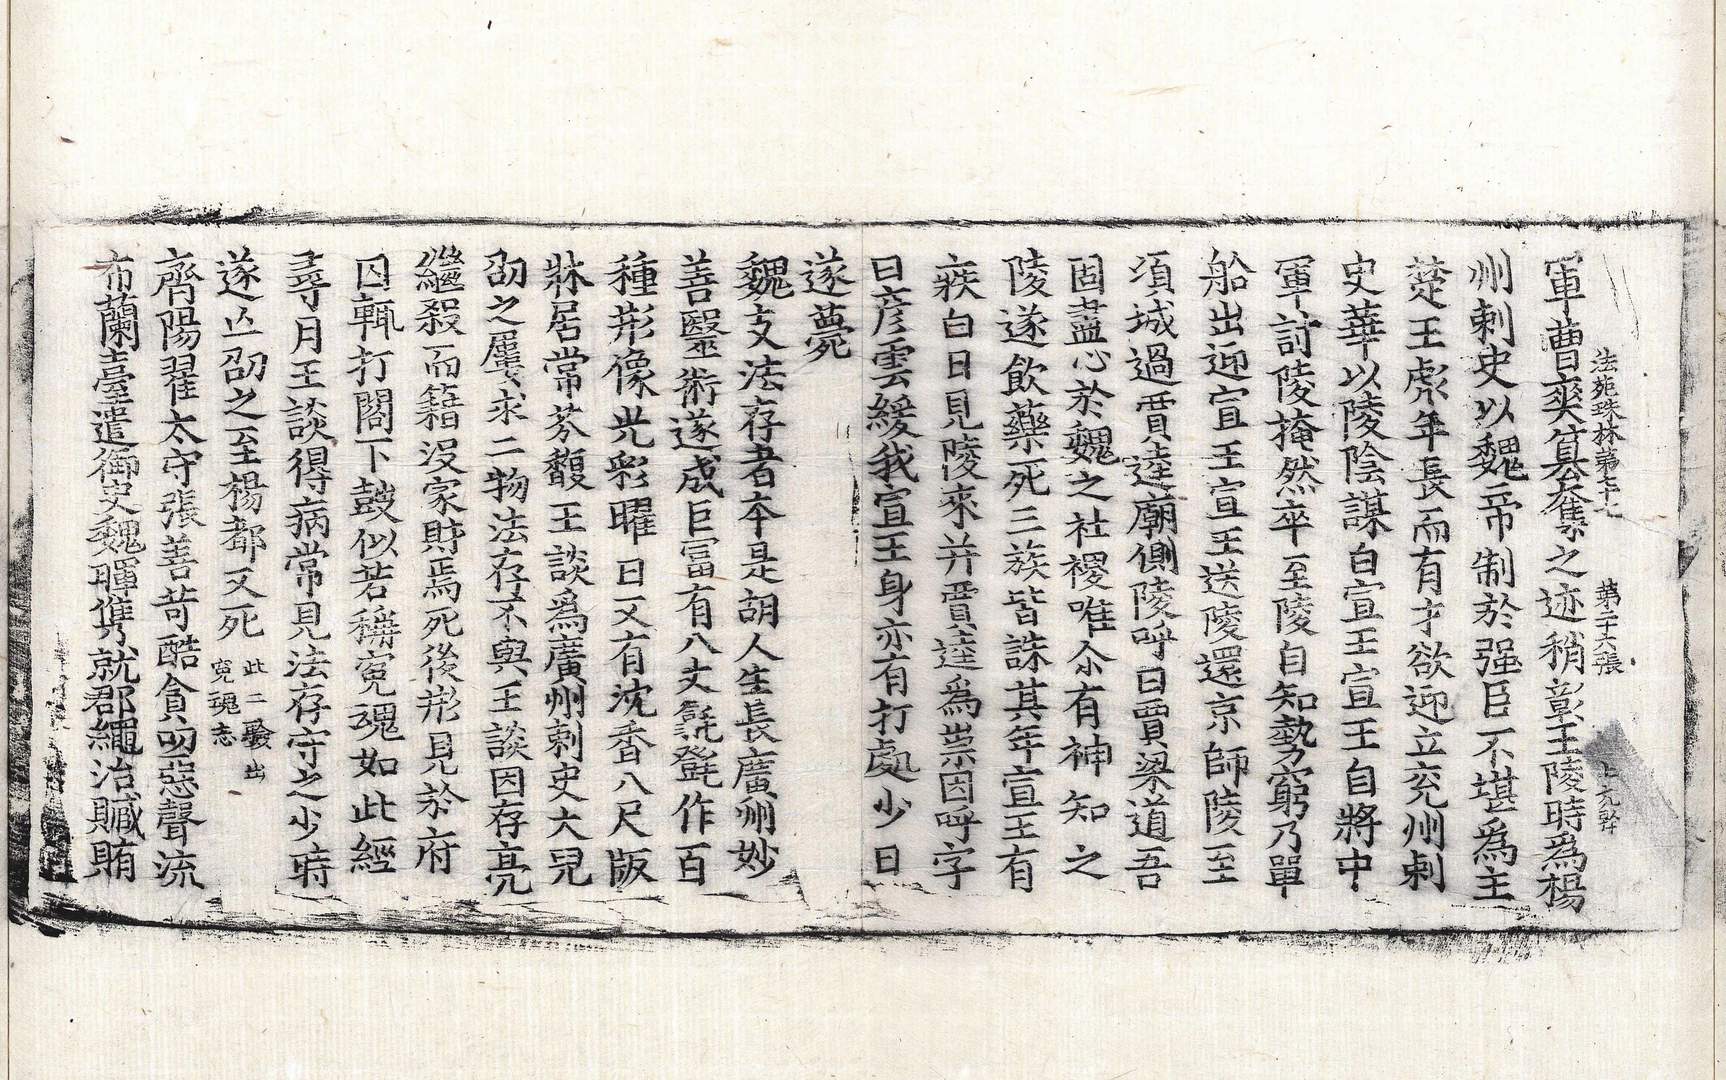 法苑珠林第七十七　第二十六張
軍曹爽篡奪之迹稍彰王陵時爲楊
州刺史以魏帝制於强臣不堪爲主
楚王彪年長而有才欲迎立兖州刺
史華以陵陰謀白宣王宣王自將中
軍討陵掩然卒至陵自知勢窮乃單
船出迎宣王宣王送陵還京師陵至
項城過賈逵廟側陵呼曰賈梁道吾
固盡心於魏之社稷唯尒有神知之
陵遂飲藥死三族皆誅其年宣王有
疾白日見陵來并賈逵爲祟因呼字
曰彦雲緩我宣王身亦有打處少日
遂薨
魏支法存者本是胡人生長廣州妙
善醫術遂成巨富有八丈㲪㲪作百
種形像光彩曜日又有沈香八尺版
牀居常芬馥王談爲廣州刺史大兒
劭之屢求二物法存不與王談因存亮
繼殺而籍没家財焉死後形見於府
囚輒打閣下鼓似若稱寃魂如此經
尋月王談得病常見法存守之少時
遂亡劭之至楊都又死 此二驗出寃魂志
齊陽翟太守張善苛酷貪叨惡聲流
布蘭臺遣御史魏暉儁就郡繩治贓賄